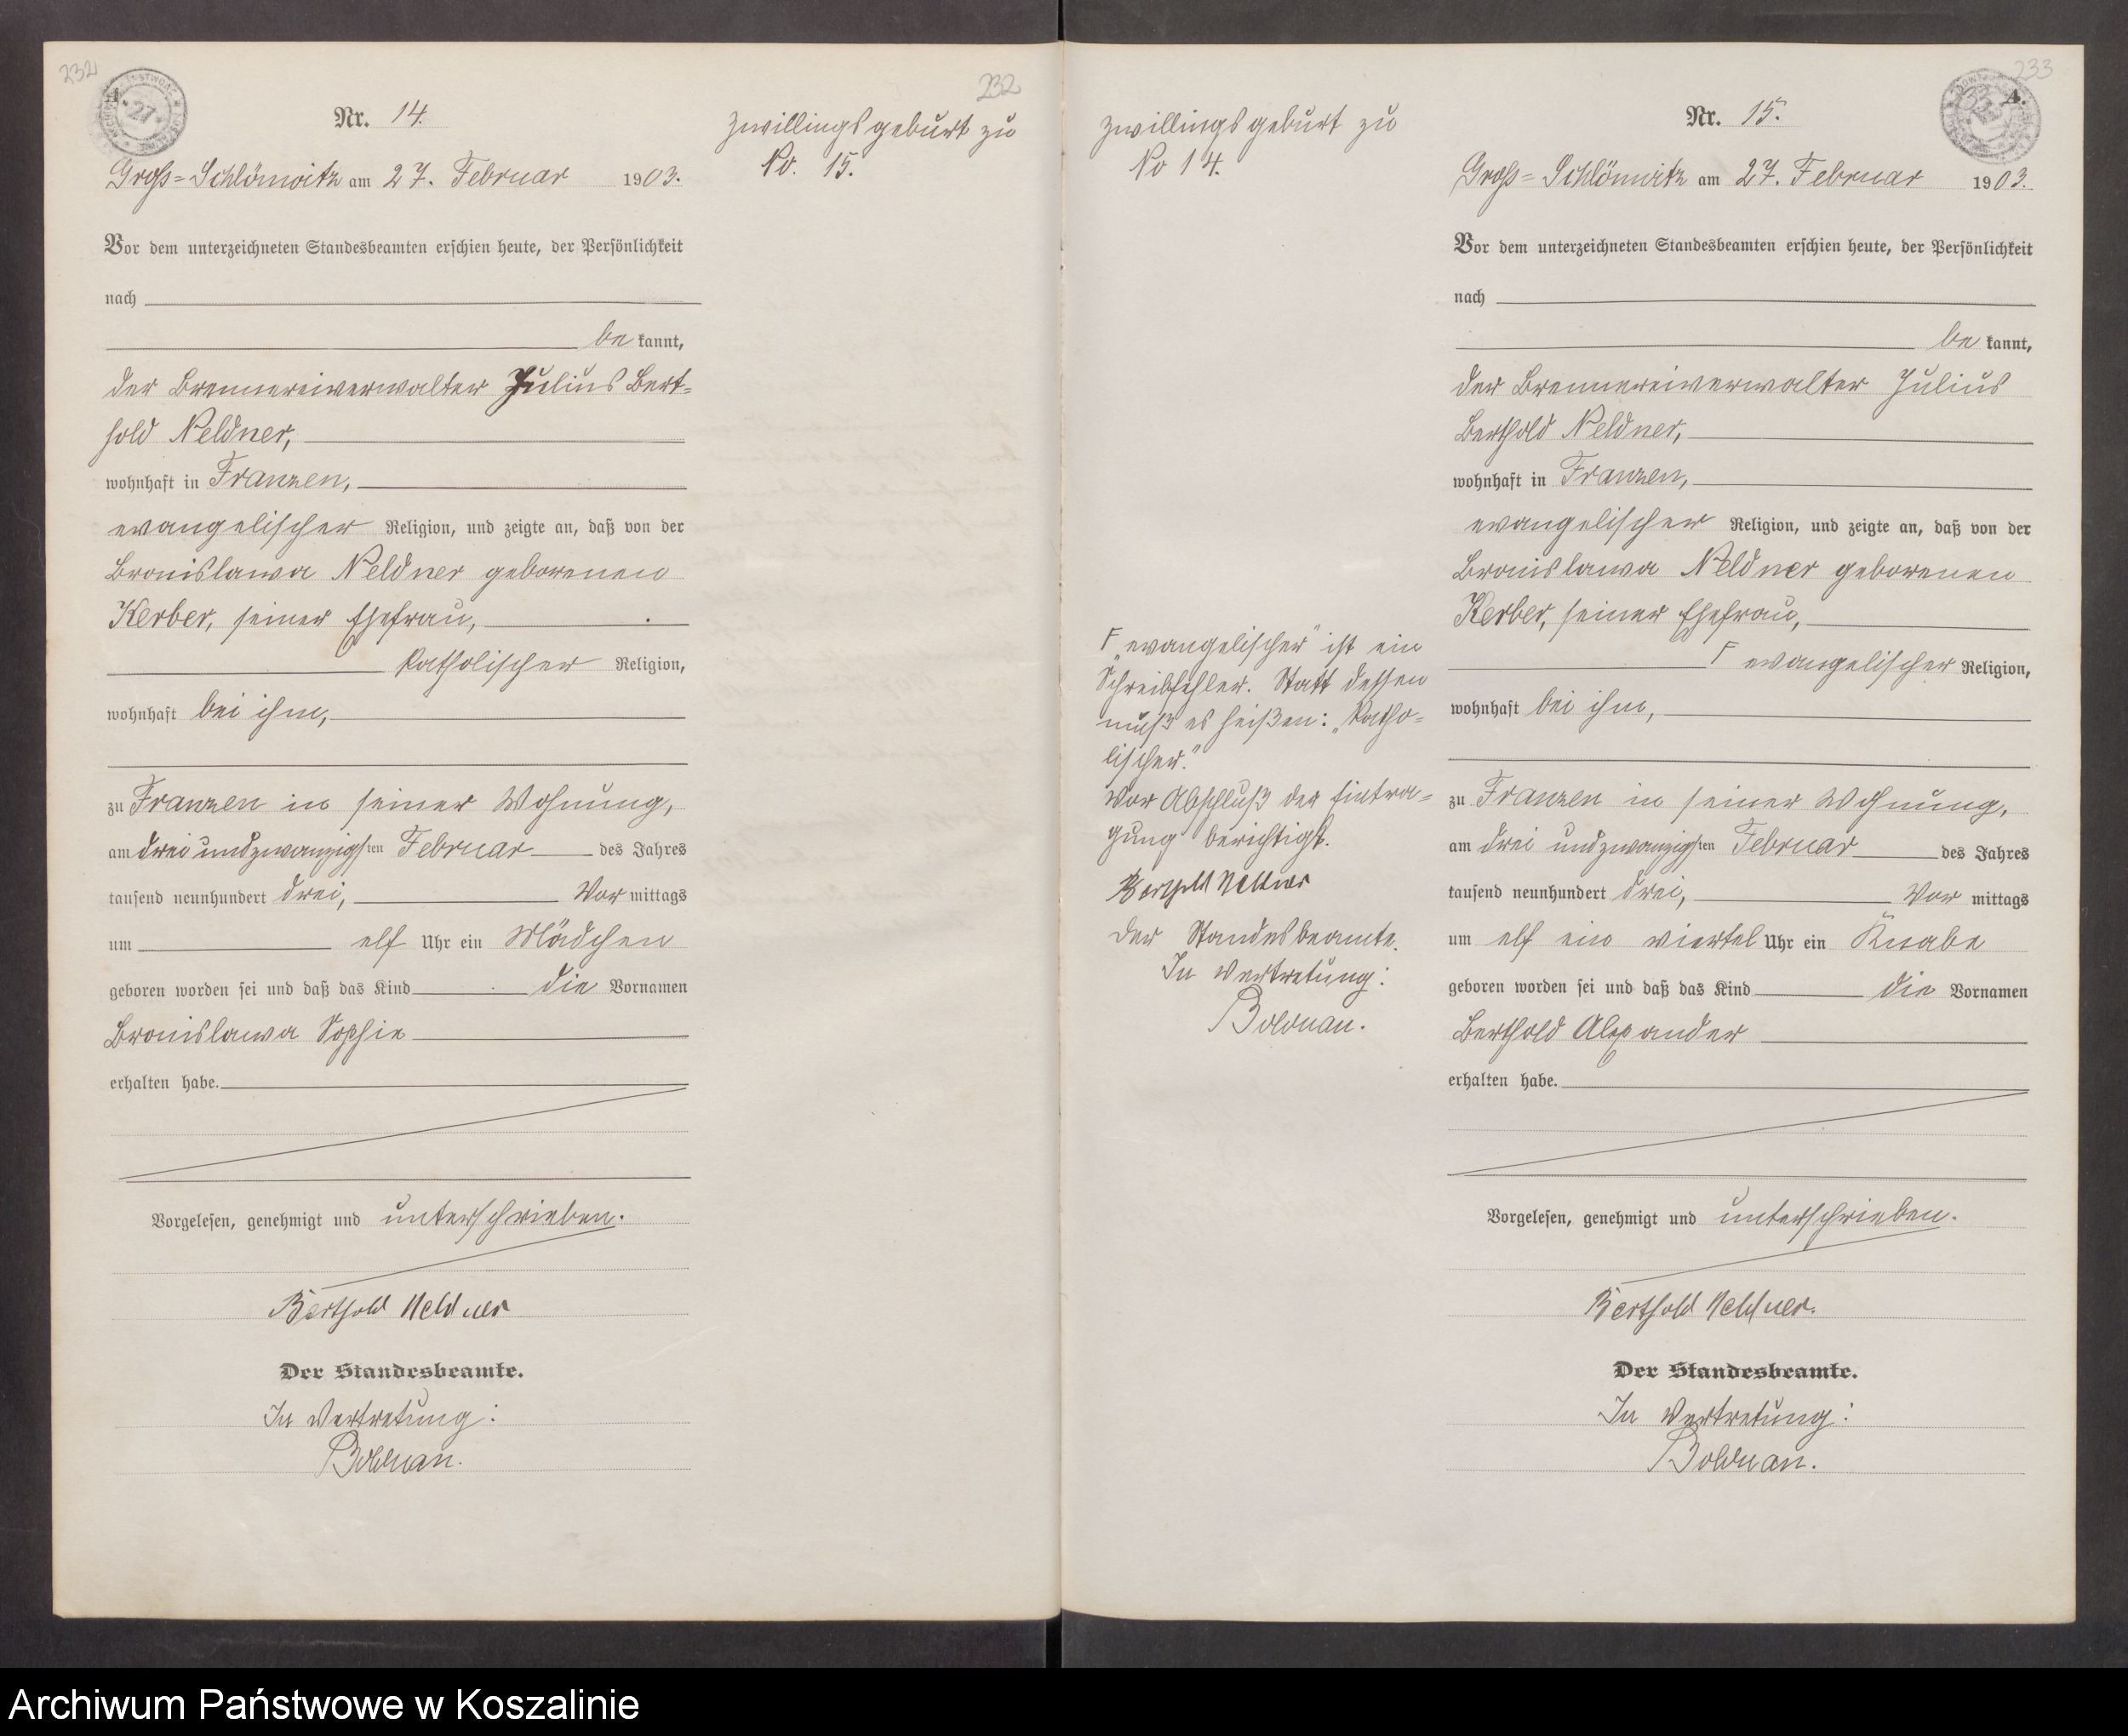 232
A.
Nr. 14.
Groß=Schlönwitz am 27. Februar 1903.
Vor dem unterzeichneten Standesbeamten erschien heute, der Persönlichkeit
nach
be kannt,
der Brennereiverwalter Julius Bert=
hold Neldner,
wohnhaft in Franzen,
evangelischer Religion, und zeigte an, daß von der
Bronislawa Neldner geborenen
Kerber, seiner Ehefrau,
katholischer Religion,
wohnhaft bei ihm,
zu Franzen in seiner Wohnung,
am drei und zwanzigsten Februar des Jahres
tausend neunhundert drei, Vor mittags
um elf Uhr ein Mädchen
geboren worden sei und daß das Kind die Vornamen
Bronislawa Sophie
erhalten habe.
Vorgelesen, genehmigt und unterschrieben.
Berthold Neldner
Der Standesbeamte.
In Vertretung:
Bolduan.
232
Zwillingsgeburt zu
No. 15.
Zwillingsgeburt zu
No 14.
Γ „evangelischer" ist ein
Schreibfehler. Statt dessen
muß es heißen: „katho=
lischer."
Vor Abschluß der Eintra=
gung berichtigt.
Berthold Neldner
Der Standesbeamte.
In Vertretung:
Bolduan.
233
A.
Nr. 15.
Groß=Schlönwitz am 27. Februar 1903.
Vor dem unterzeichneten Standesbeamten erschien heute, der Persönlichkeit
nach
be kannt,
der Brennereiverwalter Julius
Berthold Neldner,
wohnhaft in Franzen,
evangelischer Religion, und zeigte an, daß von der
Bronislawa Neldner geborenen
Kerber, seiner Ehefrau,
Γ evangelischer Religion,
wohnhaft bei ihm,
zu Franzen in seiner Wohnung,
am drei und zwanzigsten Februar des Jahres
tausend neunhundert drei, Vor mittags
um elf ein viertel Uhr ein Knabe
geboren worden sei und daß das Kind die Vornamen
Berthold Alexander
erhalten habe.
Vorgelesen, genehmigt und unterschrieben.
Berthold Neldner.
Der Standesbeamte.
In Vertretung:
Bolduan.
Archiwum Państwowe w Koszalinie